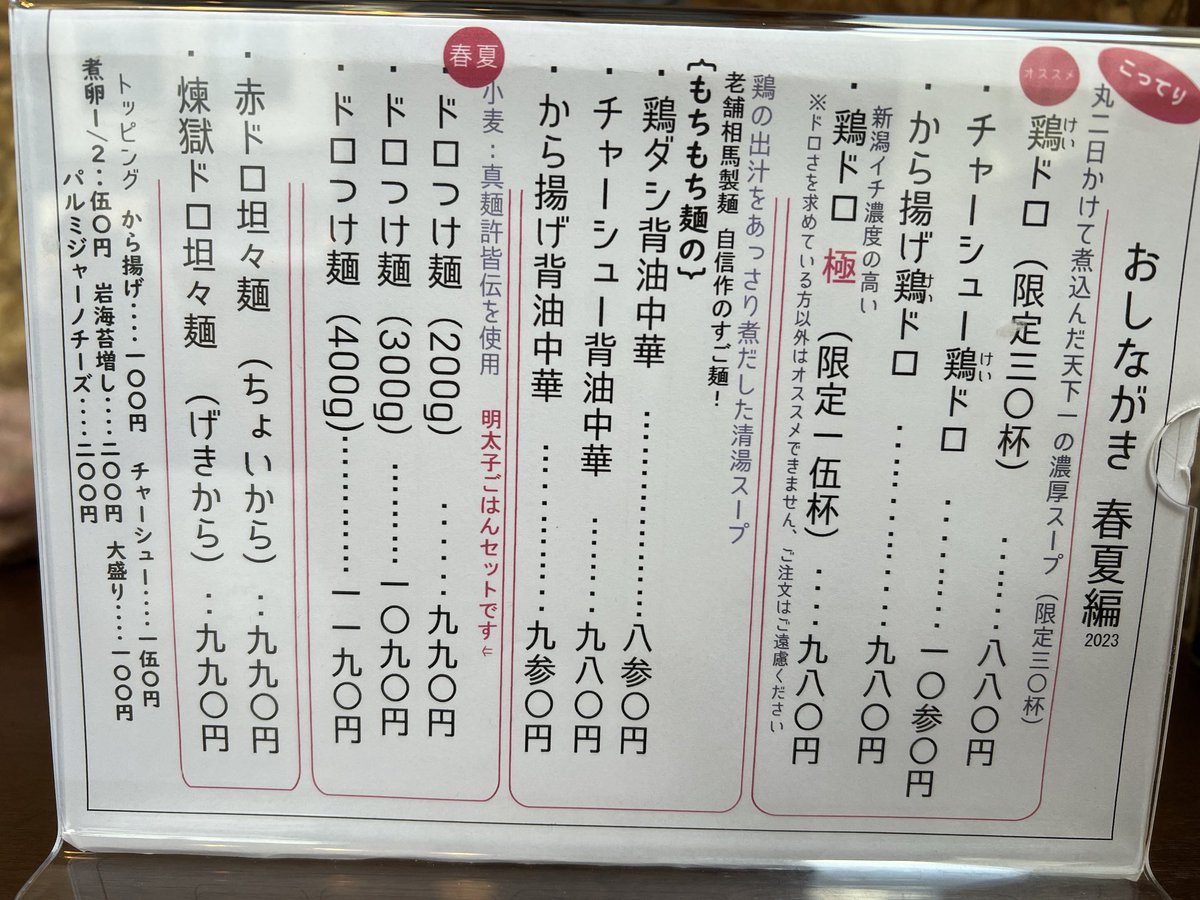 おしながき 春夏編 2023
こってり
丸二日かけて煮込んだ天下一の濃厚スープ（限定三〇杯）
オススメ
・鶏ドロ（限定三〇杯）……八八〇円
けい
・チャーシュー鶏ドロ…………一〇参〇円
けい
・から揚げ鶏ドロ…………九八〇円
けい
新潟イチ濃度の高い
・鶏ドロ 極（限定一伍杯）‥‥九八〇円
※ドロさを求めている方以外はオススメできません、ご注文はご遠慮ください
鶏の出汁をあっさり煮だした清湯スープ
老舗相馬製麺 自信作のすご麺！
{もちもち麺の}
・鶏ダシ背油中華…………八参〇円
・チャーシュー背油中華……九八〇円
・から揚げ背油中華…………九参〇円
春夏
小麦：真麺許皆伝を使用 明太子ごはんセットです⇐
・ドロつけ麺（200g）……九九〇円
・ドロつけ麺（300g）………一〇九〇円
・ドロつけ麺（400g）…………一一九〇円
・赤ドロ坦々麺（ちょいから）‥九九〇円
・煉獄ドロ坦々麺（げきから）‥九九〇円
トッピング から揚げ‥‥一〇〇円 チャーシュー‥‥一伍〇円
煮卵1/2‥伍〇円 岩海苔増し‥‥二〇〇円 大盛り‥‥一〇〇円
パルミジャーノチーズ‥‥二〇〇円